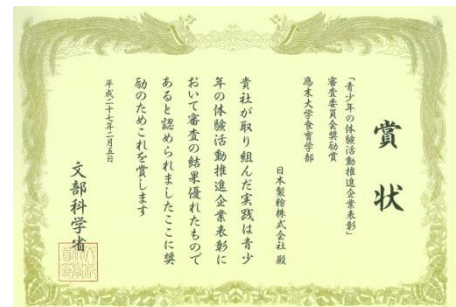 賞状
「青少年の体験活動推進企業表彰」
審査委員会奨励賞
日本製粉株式会社 殿
貴社が取り組んだ実践は青少
年の体験活動推進企業表彰に
おいて審査の結果優れたもので
あると認められましたここに奨
励のためこれを賞します
平成二十七年二月五日
文部科学省